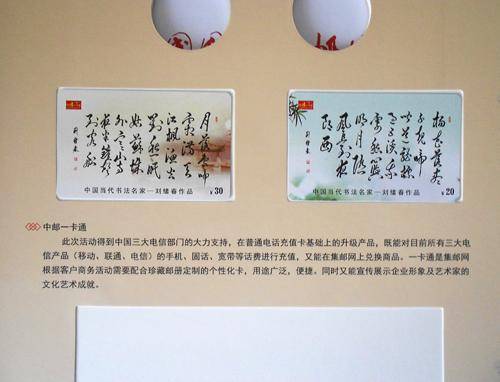 月落乌啼
霜满天
江枫渔火
对愁眠
姑苏城
外寒山寺
夜半钟声
到客船
中国当代书法名家—刘缙春作品
¥30
杨花落尽
子规啼
闻道龙标
过五溪我
寄愁心与
明月随
风直到夜
郎西
中国当代书法名家—刘缙春作品
¥20
中邮一卡通
此次活动得到中国三大电信部门的大力支持，在普通电话充值卡基础上的升级产品，既能对目前所有三大电
信产品（移动、联通、电信）的手机、固话、宽带等话费进行充值，又能在集邮网上兑换商品。一卡通是集邮网
根据客户商务活动需要配合珍藏邮册定制的个性化卡，用途广泛，便捷。同时又能宣传展示企业形象及艺术家的
文化艺术成就。